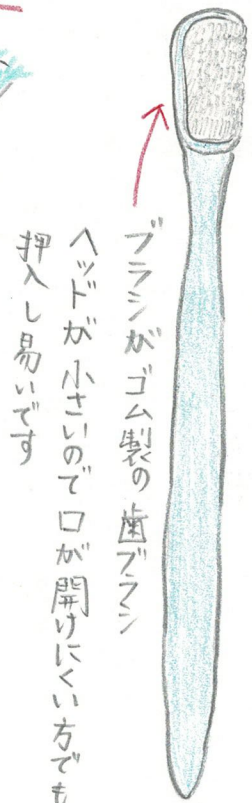 ブラシがゴム製の歯ブラシ
ヘッドが小さいので口が開けにくい方でも
押入し易いです